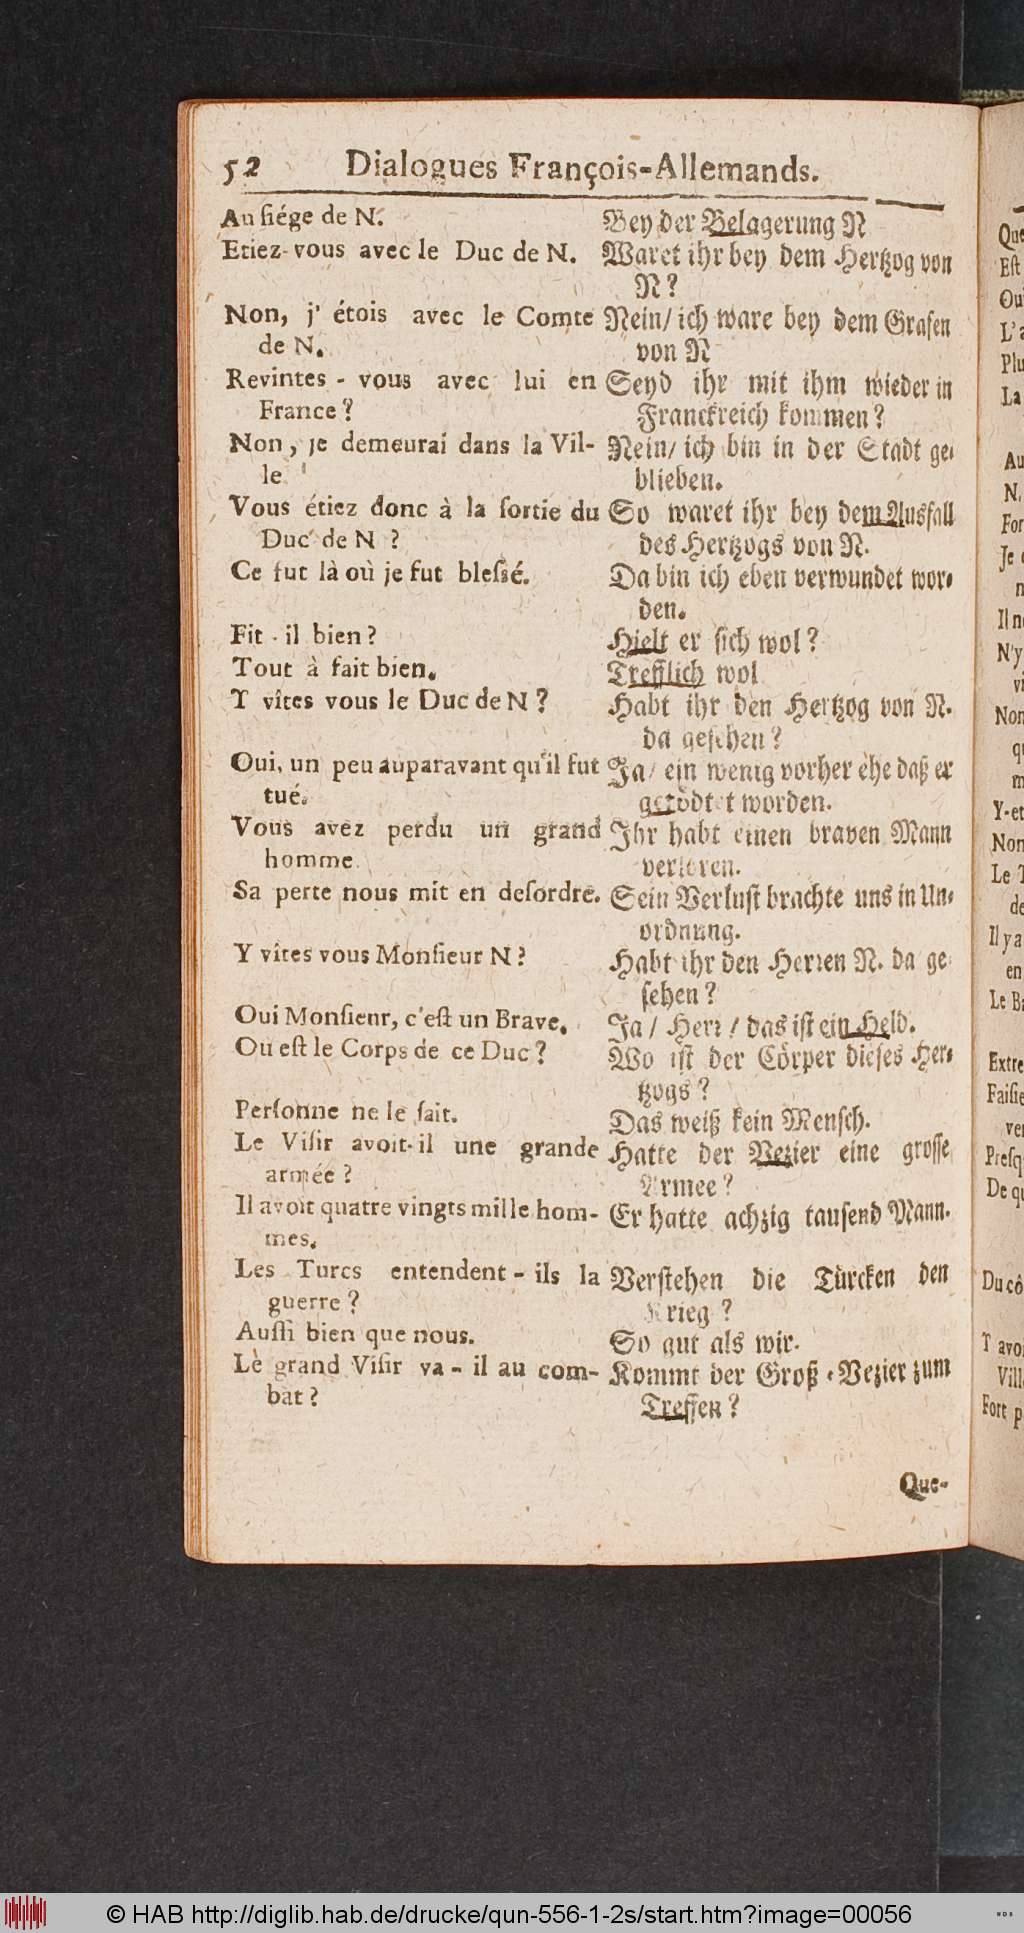 52 Dialogues François-Allemands.
Au siége de N.
Etiez-vous avec le Duc de N.
Non, j' étois avec le Comte
de N.
Revintes - vous avec lui en
France ?
Non, je demeurai dans la Vil-
le
Vous étiez donc à la sortie du
Duc de N ?
Ce fut là où je fut blessé.
Fit - il bien ?
Tout à fait bien.
Y vîtes vous le Duc de N ?
Oui, un peu auparavant qu'il fut
tué.
Vous avez perdu un grand
homme.
Sa perte nous mit en desordre.
Y vîtes vous Monsieur N ?
Oui Monsienr, c'est un Brave.
Ou est le Corps de ce Duc ?
Personne ne le sait.
Le Visir avoit-il une grande
armée ?
Il avoit quatre vingts mille hom-
mes.
Les Turcs entendent - ils la
guerre ?
Aussi bien que nous.
Le grand Visir va - il au com-
bat ?
Bey der Belagerung N
Waret ihr bey dem Hertzog von
N ?
Nein/ ich ware bey dem Grafen
von N
Seyd ihr mit ihm wieder in
Franckreich kommen ?
Nein/ ich bin in der Stadt ge-
blieben.
So waret ihr bey dem Ausfall
des Hertzogs von N.
Da bin ich eben verwundet wor-
den.
Hielt er sich wol ?
Trefflich wol
Habt ihr den Hertzog von N.
da gesehen ?
Ja/ ein wenig vorher ehe daß er
getödtet worden.
Ihr habt einen braven Mann
verloren.
Sein Verlust brachte uns in Un-
ordnung.
Habt ihr den Herren N. da ge-
sehen ?
Ja / Herr / das ist ein Held.
Wo ist der Cörper dieses Her-
tzogs ?
Das weiß kein Mensch.
Hatte der Vezier eine grosse
Armee ?
Er hatte achzig tausend Mann.
Verstehen die Türcken den
Krieg ?
So gut als wir.
Kommt der Groß-Vezier zum
Treffen ?
Que-
© HAB http://diglib.hab.de/drucke/qun-556-1-2s/start.htm?image=00056